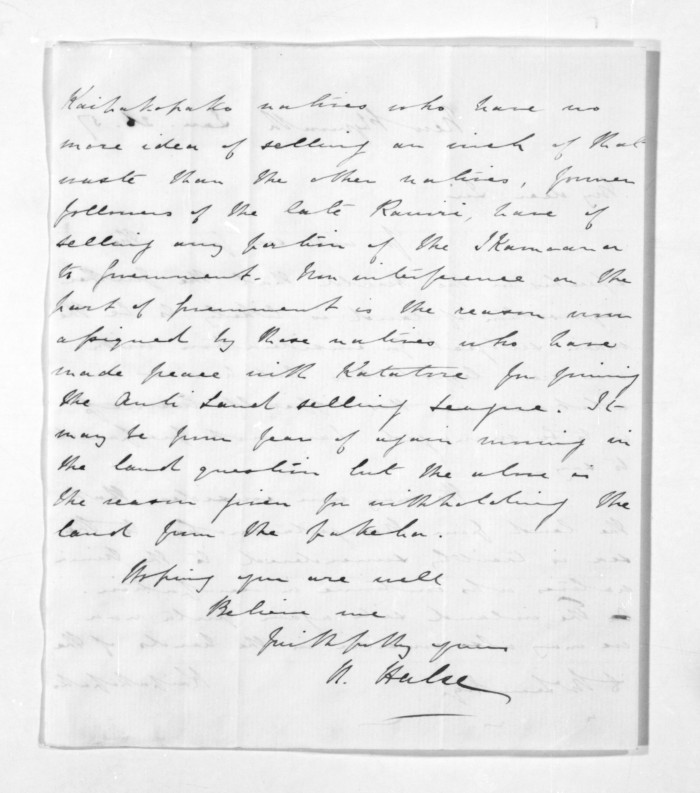 Kaipakopako natives who have no
more idea of selling an inch of that
waste than the other natives, former
followers of the late Rawiri, have of
selling any portion of the Ikamoana
to Government. Non interference on the
part of Government is the reason now
assigned by those natives who have
made peace with Katatore for joining
the Anti Land selling League. It
may be from fear of again moving in
the land question but the above is
the reason given for withholding the
land from the pakeha.
Hoping you are well
Believe me
faithfully yours
H. Halse